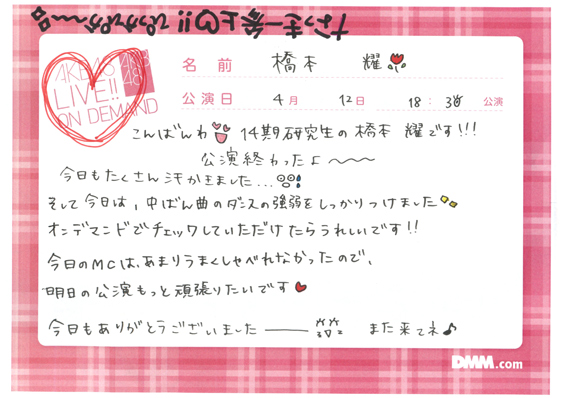 AKB48
AKB
48
LIVE!!
ON DEMAND
名 前 橋本 耀
公演日 4月 12日 18:30 公演
こんばんわ 14期研究生の橋本 耀です!!!
公演終わったよ〜〜〜
今日もたくさん汗かきました...
そして今日は、中ばん曲のダンスの強弱をしっかりつけました
オンデマンドでチェックしていただけたらうれしいです!!
今日のMCは、あまりうまくしゃべれなかったので、
明日の公演もっと頑張りたいです
今日もありがとうございました―― また来てネ♪
DMM.com